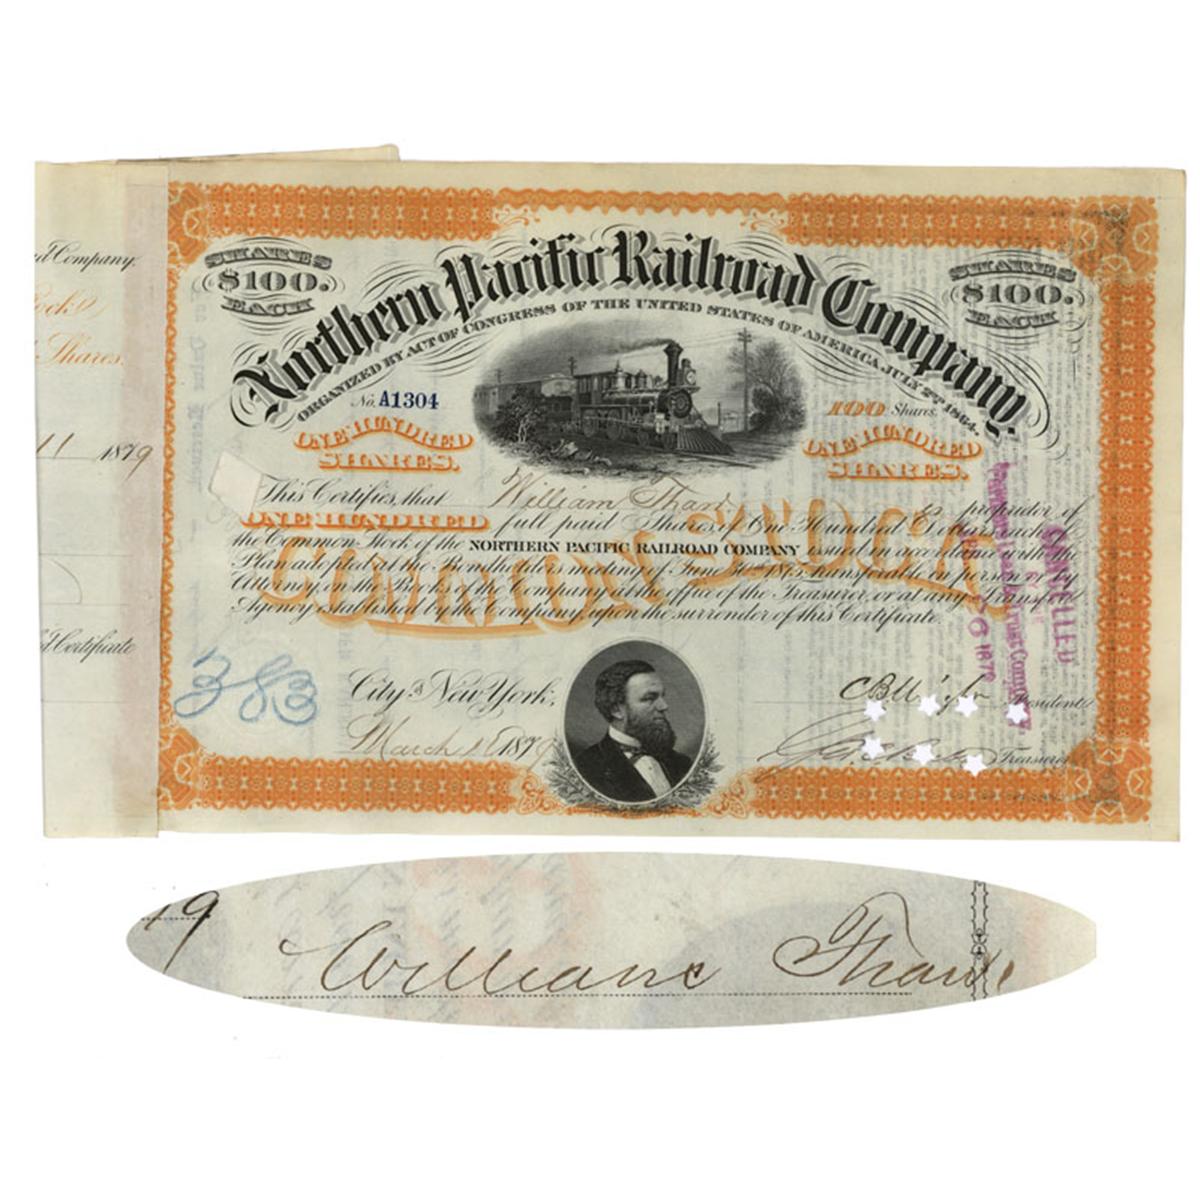 d Company.
ocks
Shares.
11 1879
d Certificate
SHARES
$100.
EACH
SHARES
$100.
EACH
Northern Pacific Railroad Company.
ORGANIZED BY ACT OF CONGRESS OF THE UNITED STATES OF AMERICA, JULY 2ND 1864.
No. A1304
100 Shares.
ONE HUNDRED
SHARES.
ONE HUNDRED
SHARES.
This Certifies, that William Thaw is proprietor of
ONE HUNDRED full paid Shares of One Hundred Dollars each of
the Common Stock of the NORTHERN PACIFIC RAILROAD COMPANY issued in accordance with the
Plan adopted at the Bondholders meeting of June 30th 1875, transferable in person or by
Attorney, in the Books of the Company at the office of the Treasurer, or at any Transfer
Agency established by the Company, upon the surrender of this Certificate.
COMMON STOCK
CANCELLED
1879
383
City of New York,
March 11 1879
President
Treasurer
19
William Thaw